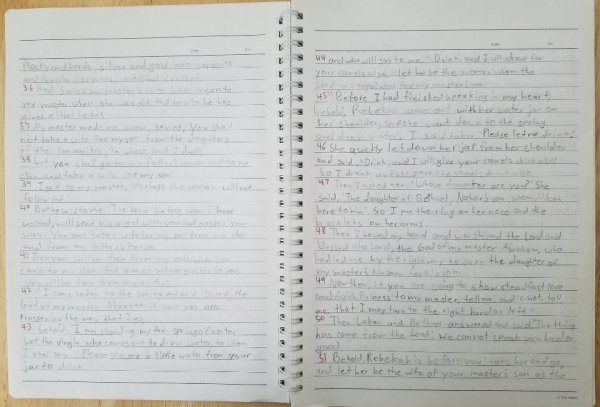 flocks and herds, silver and gold, male servants
and female servants, camels and donkeys.
36 And Sarah my master's wife bore a son to
my master when she was old and to him he has
given all that he has.
37 My master made me swear, saying, 'You shall
not take a wife for my son from the daughters
of the Canaanites, in whose land I dwell
38 but you shall go to my father's house and to my
clan and take a wife for my son.
39 I said to my master, 'Perhaps the woman will not
follow me.'
40 But he said to me, 'The Lord, before whom I have
walked, will send his angel with you and prosper your
way. You shall take a wife for my son from my clan
and from my father's house.
41 Then you will be free from my oath, when you
came to my clan. And if they will not give her to you,
you will be free from my oath.'
42 "I came today to the spring and said, 'O Lord, the
God of my master Abraham, if now you are
prospering the way that I go,
43 behold, I am standing by the spring of water.
Let the virgin who comes out to draw water, to whom
I shall say, "Please give me a little water from your
jar to drink,"
44 and who will say to me, "Drink, and I will draw for
your camels also," let her be the woman whom the
Lord has appointed for my master's son.'
45 "Before I had finished speaking in my heart,
behold, Rebekah came out with her water jar on
her shoulder, and she went down to the spring
and drew water. I said to her, 'Please let me drink.'
46 She quickly let down her jar from her shoulder
and said, 'Drink, and I will give your camels drink also.'
So I drank, and she gave the camels drink also.
47 Then I asked her, 'Whose daughter are you?' She
said, 'The daughter of Bethuel, Nahor's son, whom Milcah
bore to him.' So I put the ring on her nose and the
bracelets on her arms.
48 Then I bowed my head and worshiped the Lord and
blessed the Lord, the God of my master Abraham, who
had led me by the right way to take the daughter of
my master's kinsman for his son.
49 Now then, if you are going to show steadfast love
and faithfulness to my master, tell me; and if not, tell
me, that I may turn to the right hand or left."
50 Then Laban and Bethuel answered and said, "The thing
has come from the Lord; we cannot speak you bad or
good.
51 Behold, Rebekah is before you; take her and go,
and let her be the wife of your master's son, as the